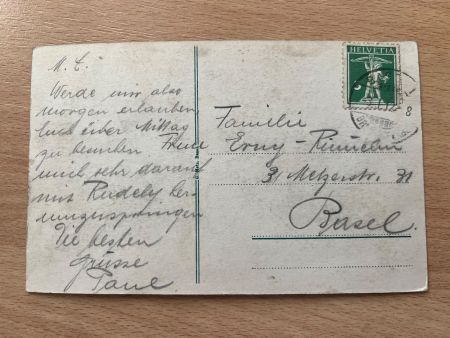 M. L.
Werde mir also
morgen erlauben
Euch über Mittag
zu besuchen Freue
mich sehr darauf
mit Rudely
Die besten
Grüsse
Paul
HELVETIA
8
Familie
Erny-
Metzerstr. 31
Basel.